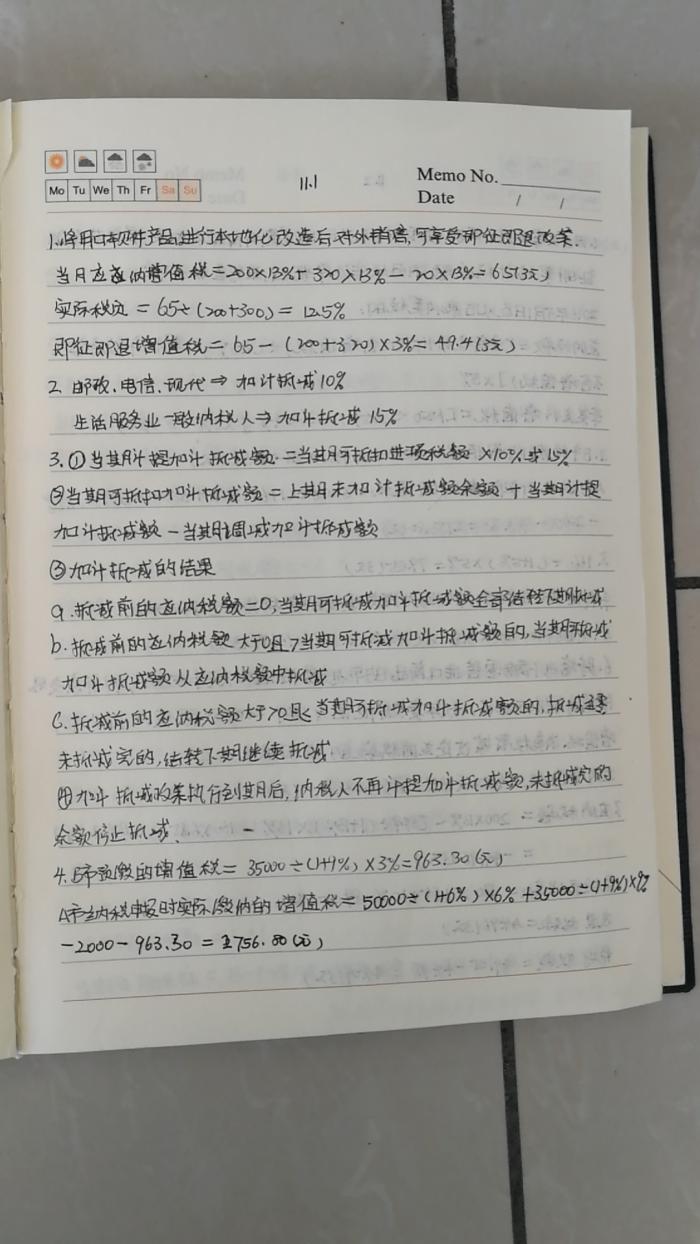 Mo Tu We Th Fr Sa Su
11.1
Memo No.
Date / /
1.将进口软件产品进行本地化改造后对外销售,可享受即征即退政策.
当月应纳增值税=200×13%+320×13%-20×13%=65(万元)
实际税负=65÷(200+300)=12.5%
即征即退增值税=65-(200+320)×3%=49.4(万元)
2.邮政、电信、现代⇒加计抵减10%
生活服务业一般纳税人⇒加计抵减15%
3.①当期计提加计抵减额=当期可抵扣进项税额×10%或15%
②当期可抵扣加计抵减额=上期末加计抵减额余额+当期计提
加计抵减额-当期调减加计抵减额
③加计抵减的结果
a.抵减前的应纳税额=0,当期可抵减加计抵减额全部结转下期抵减
b.抵减前的应纳税额大于0且>当期可抵减加计抵减额的,当期可抵减
加计抵减额从应纳税额中抵减
C.抵减前的应纳税额大于0且≤当期可抵减加计抵减额的,抵减至零
未抵减完的,结转下期继续抵减
④加计抵减政策执行到期后,纳税人不再计提加计抵减额,未抵减完的
余额停止抵减.
4.B市预缴的增值税=35000÷(1+9%)×3%=963.30(元)
A市纳税申报时实际缴纳的增值税=50000÷(1+6%)×6%+35000÷(1+9%)×9%
-2000-963.30=2756.80(元)